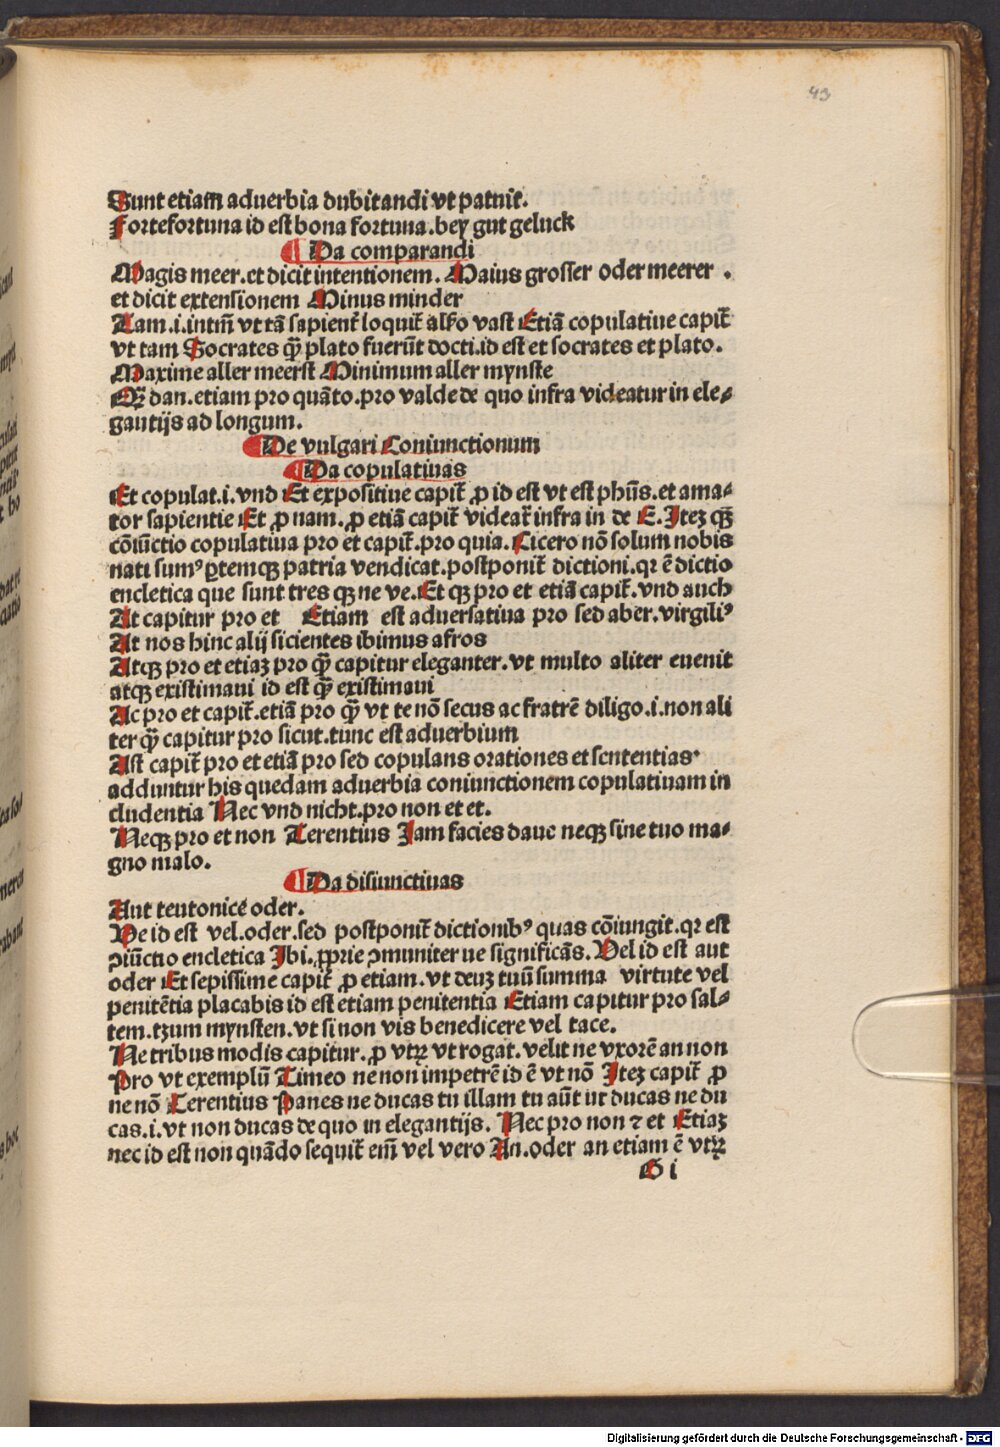 43
Sunt etiam aduerbia dubitandi vt patuit.
Fortefortuna id est bona fortuna.bey gut geluck
¶ Da comparandi
Magis meer.et dicit intentionem. Maius grosser oder meerer .
et dicit extensionem Minus minder
Tam.i.intm̄ vt tā sapient̄ loquit̄ also vast Etiā copulatiue capit̄
vt tam Socrates ꝙ̄ plato fuerūt docti.id est et socrates et plato.
Maxime aller meerst Minimum aller mynste
Qꝫ dan.etiam pro quāto.pro valde de quo infra videatur in ele⸗
gantijs ad longum.
¶ De vulgari Coniunctionum
¶ Da copulatiuas
Et copulat.i.vnd Et expositiue capit̄ ꝓ id est vt est phūs.et ama⸗
tor sapientie Et ꝓ nam.ꝓ etiā capit̄ videat̄ infra in de E.Iteꝫ qꝫ
cōiūctio copulatiua pro et capit̄.pro quia. Cicero nō solum nobis
nati sumꝰ ꝑtemqꝫ patria vendicat.postponit̄ dictioni.qꝛ ē dictio
encletica que sunt tres qꝫ ne ve.Et qꝫ pro et etiā capit̄.vnd auch
At capitur pro et Etiam est aduersatiua pro sed aber.virgiliꝰ
At nos hinc alij sicientes ibimus afros
Atqꝫ pro et etiaꝫ pro ꝙ̄ capitur eleganter.vt multo aliter euenit
atqꝫ existimaui id est ꝙ̄ existimaui
Ac pro et capit̄.etiā pro ꝙ̄ vt te nō secus ac fratrē diligo.i.non ali
ter ꝙ̄ capitur pro sicut.tunc est aduerbium
Ast capit̄ pro et etiā pro sed copulans orationes et sententias·
adduntur his quedam aduerbia coniunctionem copulatiuam in
cludentia Nec vnd nicht.pro non et et.
Neqꝫ pro et non Terentius Iam facies daue neqꝫ sine tuo ma⸗
gno malo.
¶ Da disiunctiuas
Aut teutonicē oder.
Ve id est vel.oder.sed postponit̄ dictionibꝰ quas cōiungit.qꝛ est
ꝯiūctio encletica Ibi.ꝓprie ꝯmuniter ue significās. Vel id est aut
oder Et sepissime capit̄ ꝓ etiam.vt deuꝫ tuū summa virtute vel
penitētia placabis id est etiam penitentia Etiam capitur pro sal⸗
tem.tzum mynsten.vt si non vis benedicere vel tace.
Ne tribus modis capitur. ꝓ vtꝝ vt rogat.velit ne vxorē an non
Pro vt exemplū Timeo ne non impetrē id ē vt nō Iteꝫ capit̄ ꝓ
ne nō Terentius Panes ne ducas tu illam tu aūt ut ducas ne du
cas.i.vt non ducas de quo in elegantijs. Nec pro non ⁊ et Etiaꝫ
nec id est non quādo sequit̄ em̄ vel vero An.oder an etiam ē vtꝝ
G i
Digitalisierung gefördert durch die Deutsche Forschungsgemeinschaft - DFG